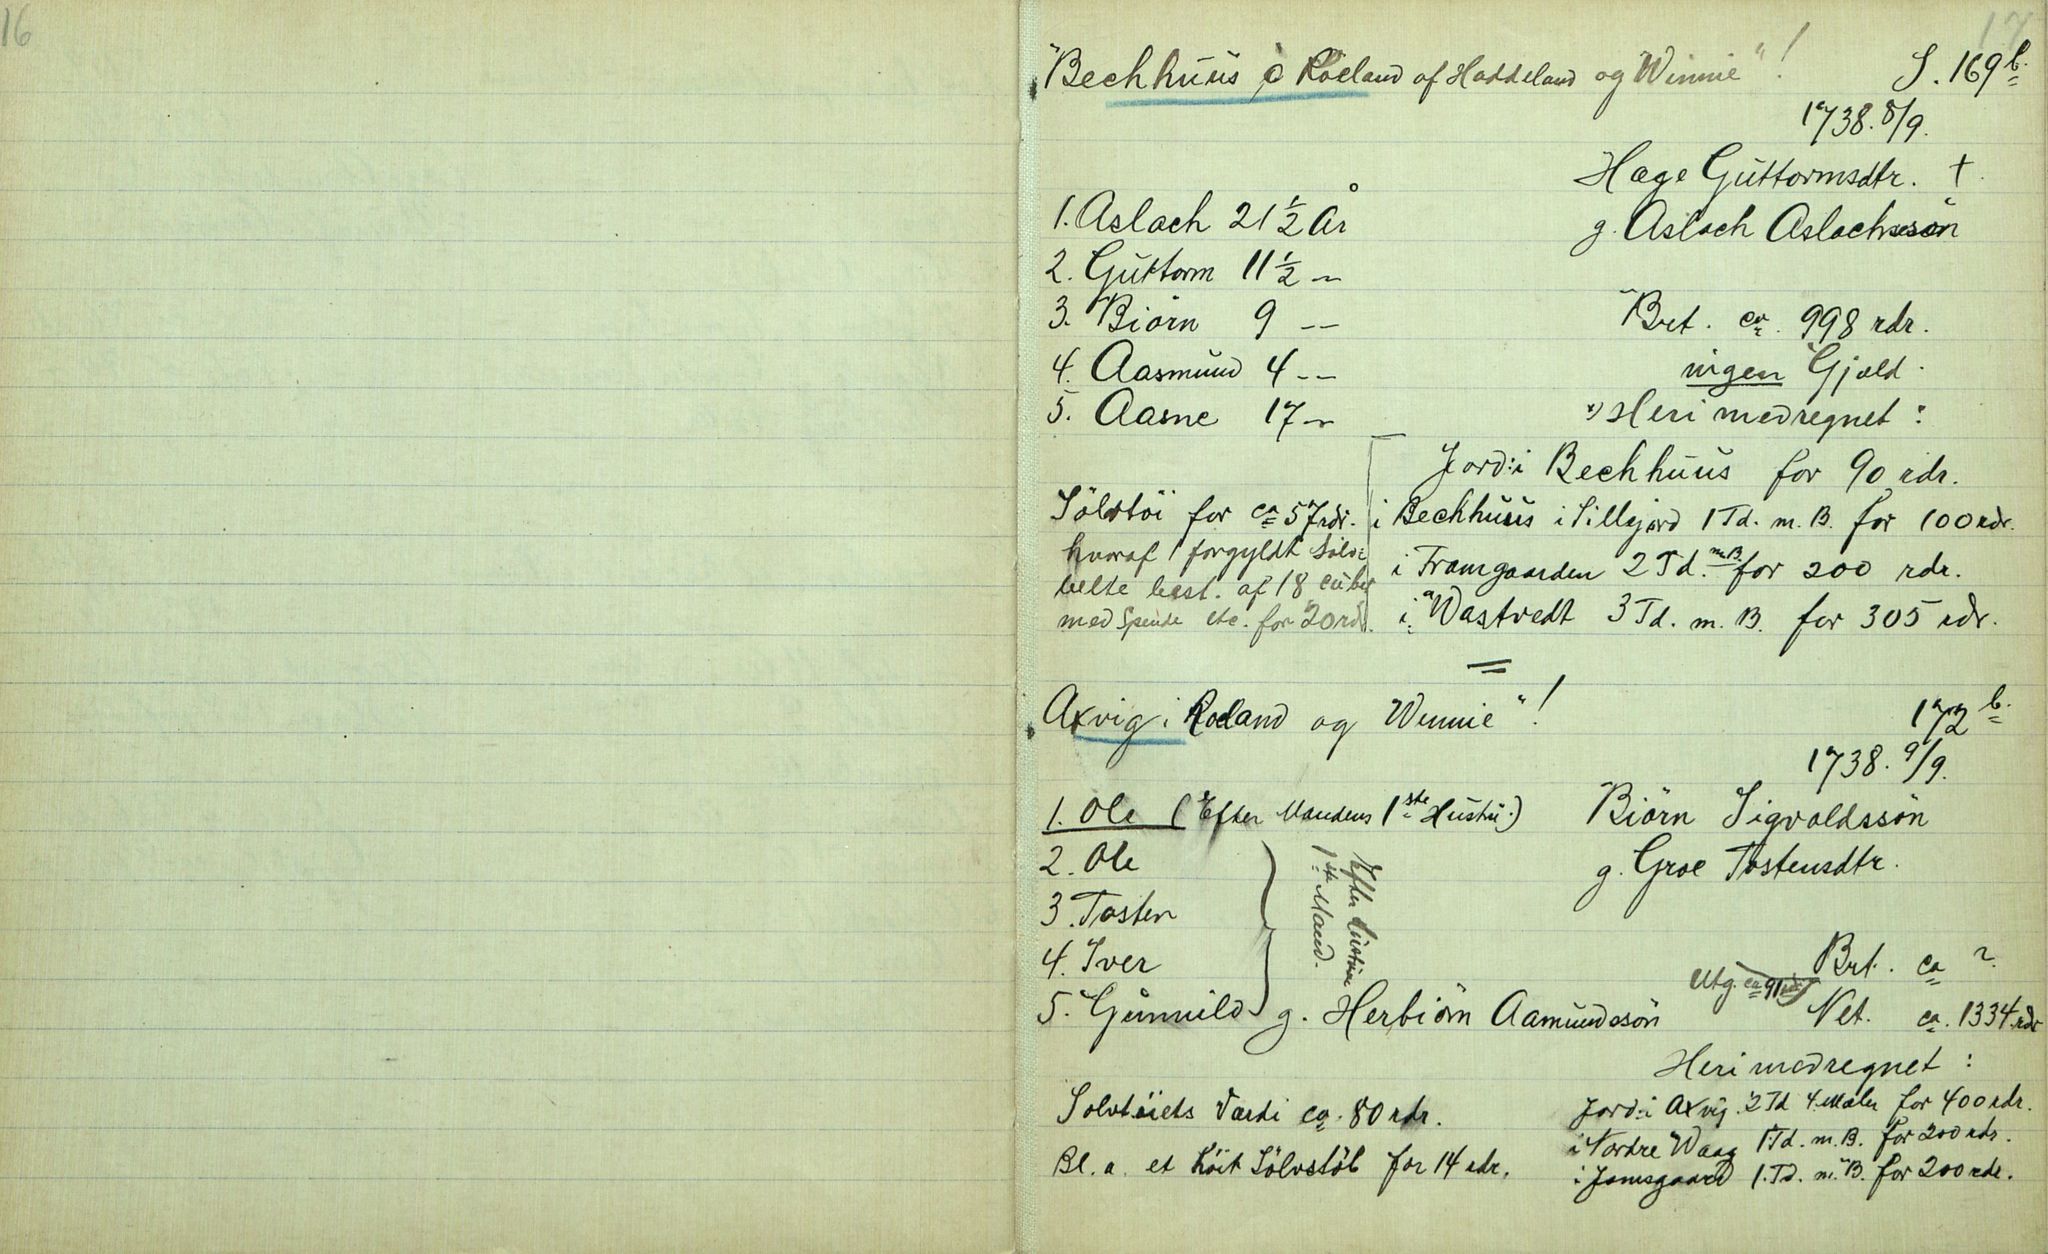 16
17
"Bechhuus i Roeland af Haddeland og Winnie"!
S. 169 b.
1738. 8/9.
Hæge Guttormsdtr. †.
1. Aslach 21 1/2 År
g. Aslach Aslachssön
2. Guttorm 11 1/2 —
3. Biörn 9 --
Brt. ca. 998 rdr.
4. Aasmund 4 --
ingen Gjæld.
5. Aasne 17 —
x) Heri medregnet:
Jord: i Bechhuus for 90 rdr.
Sölvtöi for ca 57 rdr.
i Bechhuus i Sillejord 1 Td. m. B. for 100 rdr.
hvoraf 1 forgyldt Sölv=
i Framgaarden 2 Td. m.B. for 200 rdr.
belte best. af 18
med Spende etc. for 20 rdr.
i Wastvedt 3 Td. m. B. for 305 rdr.
Axvig i Roeland og Winnie"!
172 b.
1738. 9/9.
1. Ole (Efter Mandens 1ste Hustru.)
Biörn Sigvaldssön
2. Ole
g. Groe Tostensdtr.
3. Tosten
4. Iver
Efter Hustruens
1ste Mand.
Brt. ca ?
Utg. ca 91 rdr
5. Gunnild g. Herbiörn Aamundssön
Net. ca. 1334 rdr
Heri medregnet:
Solvtöiets Værdi ca. 80 rdr.
Jord: i Axvig 2 Td 4 Mæler for 400 rdr.
i Nordre Waag 1 Td. m. B. for 200 rdr.
Bl. a. et höit Sölvstöb for 14 rdr.
i Jonsgaard 1. Td. m. B. for 200 rdr.